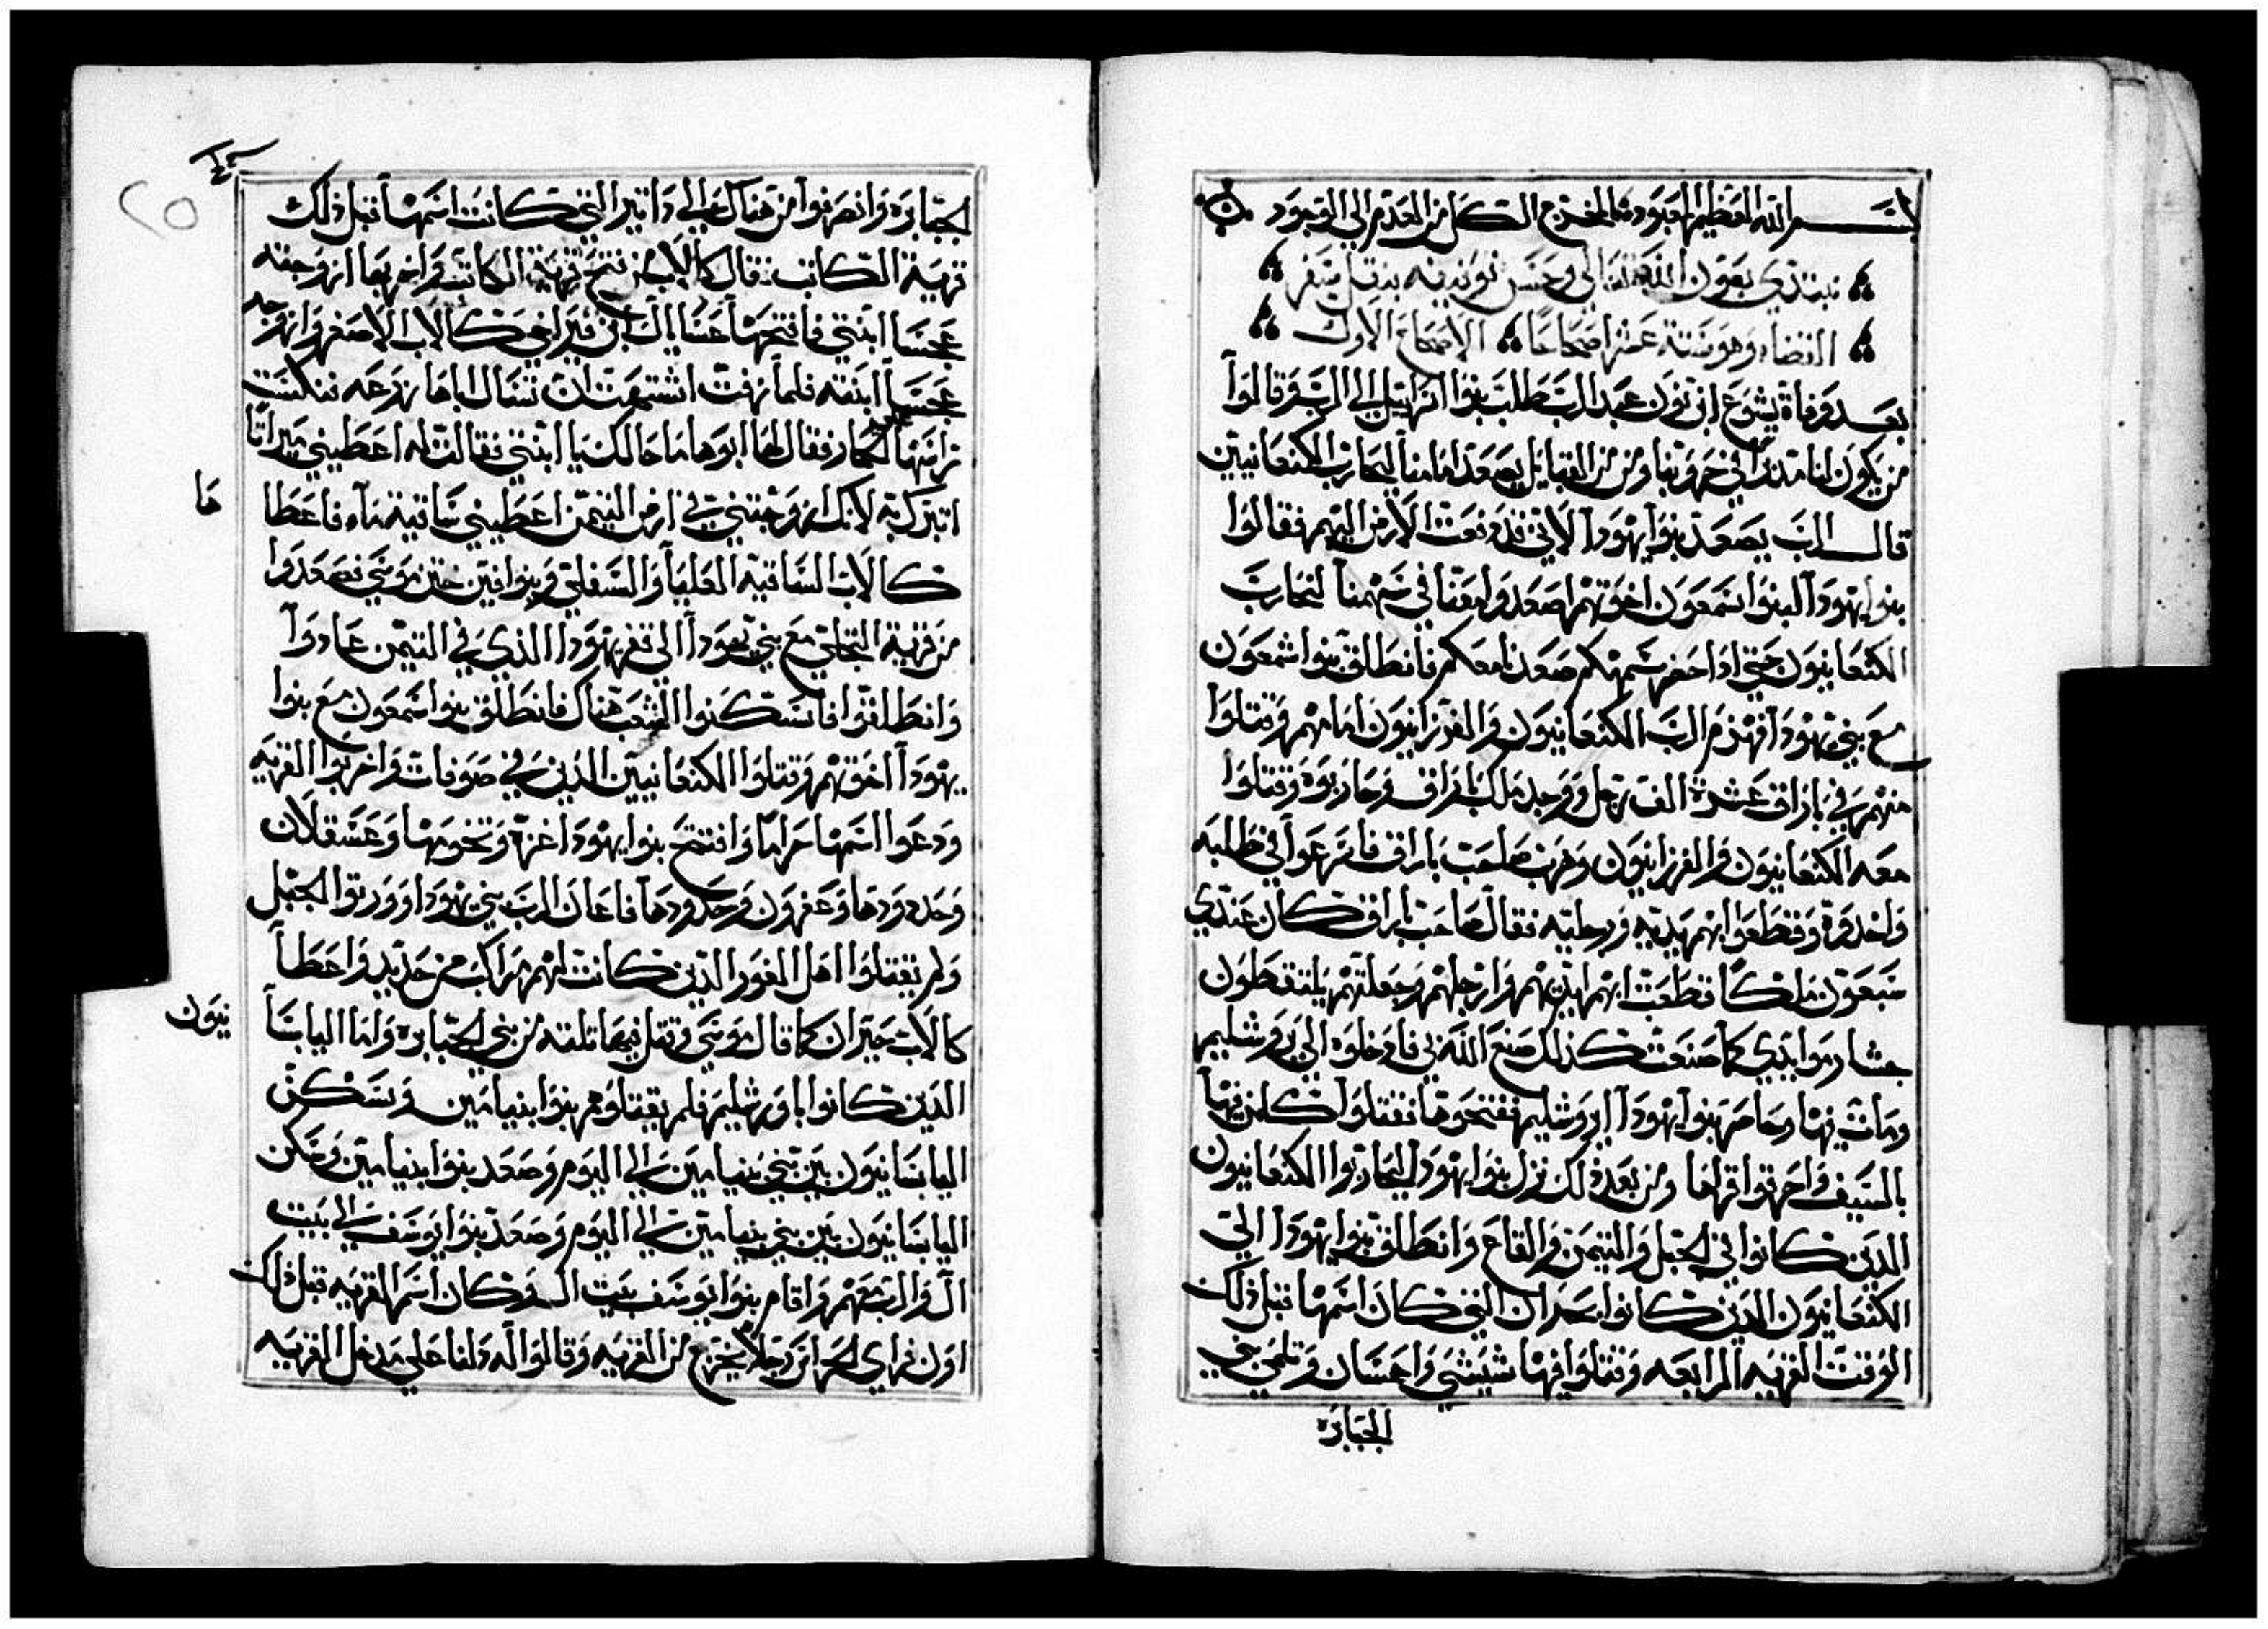 بسم الله العظيم المعبود المخرج الكل من العدم الى الوجود
نبتدي بعون الله تعالى وحسن توفيقه بنقل سفر
القضاه وهو ستة عشر اصحاحًا الاصحاح الاول
بعد وفاة يشوع ابن نون عبد الرب طلب بنوا اسراييل الى الرب وقالوا
من يكون لنا مدبرًا في حروبنا ومن من القبايل يصعد امامنا ليحارب الكنعانيين
قال الرب يصعد بنوا يهودا لاني قد دفعت الارض اليهم فقالوا
بنوا يهودا لبنوا شمعون اخوتهم اصعدوا معنا في سهمنا لنحارب
الكنعانيون حتى اذا حضر سهمكم صعدنا معكم فانطلق بنوا شمعون
مع بني يهودا فهزم الرب الكنعانيون والفرزانيون امامهم وقتلوا
منهم في باراق عشرة الف رجل ووجد ملك باراق وحاربوه وقتلوا
معه الكنعانيون والفرزانيون وهرب صاحب باراق فاسرعوا في طلبه
واخدوه وقطعوا ابهم يديه ورجليه فقال صاحب باراق كان عندي
سبعون ملكًا قطعت ابهم ايديهم وارجلهم وجعلتهم يلتقطون
موايدي كما صنعت كذلك صنع الله بي فادخلوه الى يروشليم
ومات فيها وحاصر بنوا يهودا ايروشليم ففتحوها فقتلوا كلمن فيها
بالسيف واحرقوا قراها ومن بعد ذلك نزل بنوا يهودا ليحاربوا الكنعانيون
الدين كانوا في الجبل والتيمن والقاع وانطلق بنوا يهودا الى
الكنعانيون الدين كانوا بحبران التي كان اسمها قبل ذلك
الوقت القريه الرابعه وقتلوا فيها شيشي واحسان وتلمي بني
الجبابره
الجبابره وانصرفوا من هناك الى داتير التي كانت اسمها قبل ذلك
قرية الكاتب فقال كالاب من فتح قرية الكاتب واخربها ازوجته
عجسا ابنتي فافتتحها عثنايال ابن قيز اخي كالاب الاصغر وازوجه
عجسا ابنته فلما زفت اشتهت ان تسال اباها مزرعه فنكست
راسها الحمار فقال لها ابوها ما حالك يا ابنتي فقالت له اعطيني ميراثًا
اتبرك به لانك ازوجتني في ارض التيمن اعطيني ساقية مآء فاعطا
ها
كالاب الساقيه العليا والسفلى وبنوا قين ختن موسى فصعدوا
من قرية النخل مع بني يهودا الى قفر يهودا الذي في التيمن عادوا
وانطلقوا فاسكنوا الشعب هناك فانطلق بنوا شمعون مع بنوا
يهودا اخوتهم وقتلوا الكنعانيين الدين في صوفات واخربوا القريه
ودعوا اسمها حرامًا وافتتح بنوا يهودا غزة وتخومها وعسقلان
وحدودها وعقرون وحدودها فاعان الرب بني يهودا وورثوا الجبل
ولم يقتلوا اهل الغور الدين كانت لهم مراكب من حديد واعطا
كالاب حبران كما قال موسى وقتل فيها ثلثه من بني الجبابره واما اليابسا
نيون
الدين كانوا باورشليم فلم يقتلوهم بنوا بنيامين وسكن
اليابسانيون بين بني بنيامين الى اليوم وصعد بنوا بنيامين وسكن
اليابسانيون بين بني بنيامين الى اليوم وصعد بنوا يوسف الى بيت
ال والرب معهم واقام بنوا يوسف ببيت ال وكان اسم القريه قبل ذلك
رجلاً يخرج من القريه وقالوا له دلنا على مدخل القريه